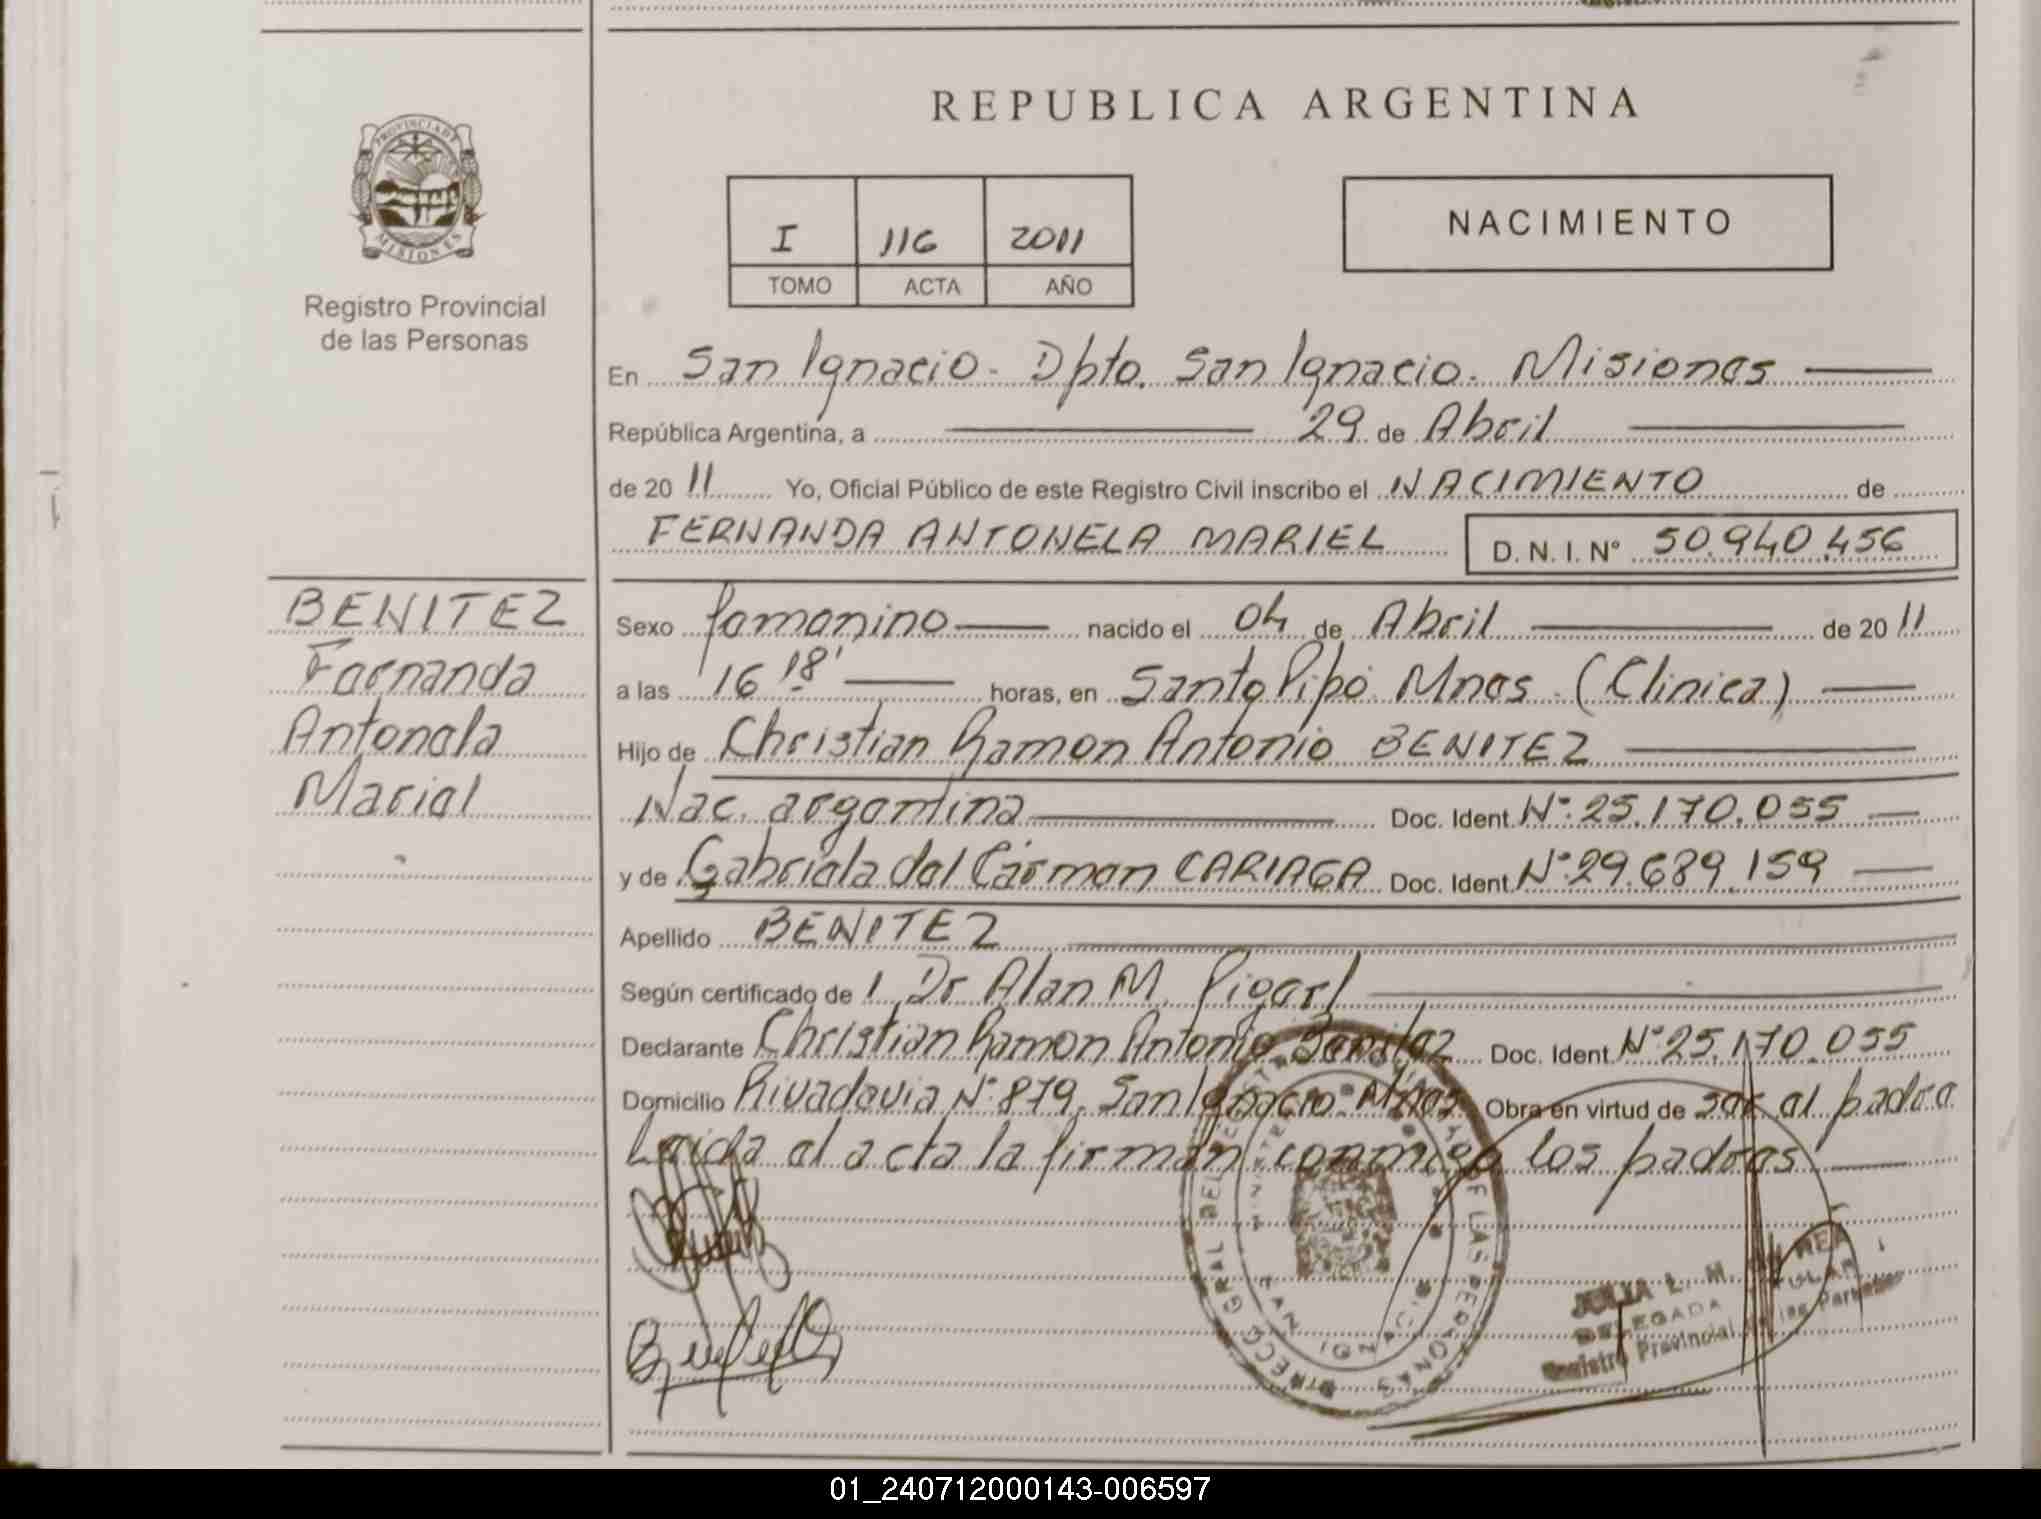 REPUBLICA ARGENTINA
PROVINCIA DE
MISIONES
Registro Provincial
de las Personas
NACIMIENTO
I 116 2011
TOMO ACTA AÑO
En San Ignacio. Dpto. San Ignacio. Misiones
República Argentina, a 29 de Abril
de 20 11 Yo, Oficial Público de este Registro Civil inscribo el NACIMIENTO de
FERNANDA ANTONELA MARIEL D. N. I. Nº 50.940.456
BENITEZ
Fernanda
Antonela
Mariel
Sexo femenino nacido el 04 de Abril de 20 11
a las 16 18' horas, en Santo Pipó. Mnes. (Clinica)
Hijo de Christian Ramon Antonio BENITEZ
Nac. argentina Doc. Ident. Nº: 25.170.055
y de Gabriela del Cármen CARIAGA Doc. Ident. Nº: 29.689.159
Apellido BENITEZ
Según certificado de 1 Dr Alan M.
Declarante Christian Ramon Antonio Benitez Doc. Ident. Nº 25.170.055
Domicilio Rivadavia Nº: 879. San Ignacio. Mnes. Obra en virtud de ser el padre
Leida el acta la firman conmigo los padres.
DIRECC GRAL DEL REGISTRO DE LAS PERSONAS
SAN IGNACIO
JULIA L. M.
DELEGADA TITULAR
Registro Provincial de las Personas
01_240712000143-006597